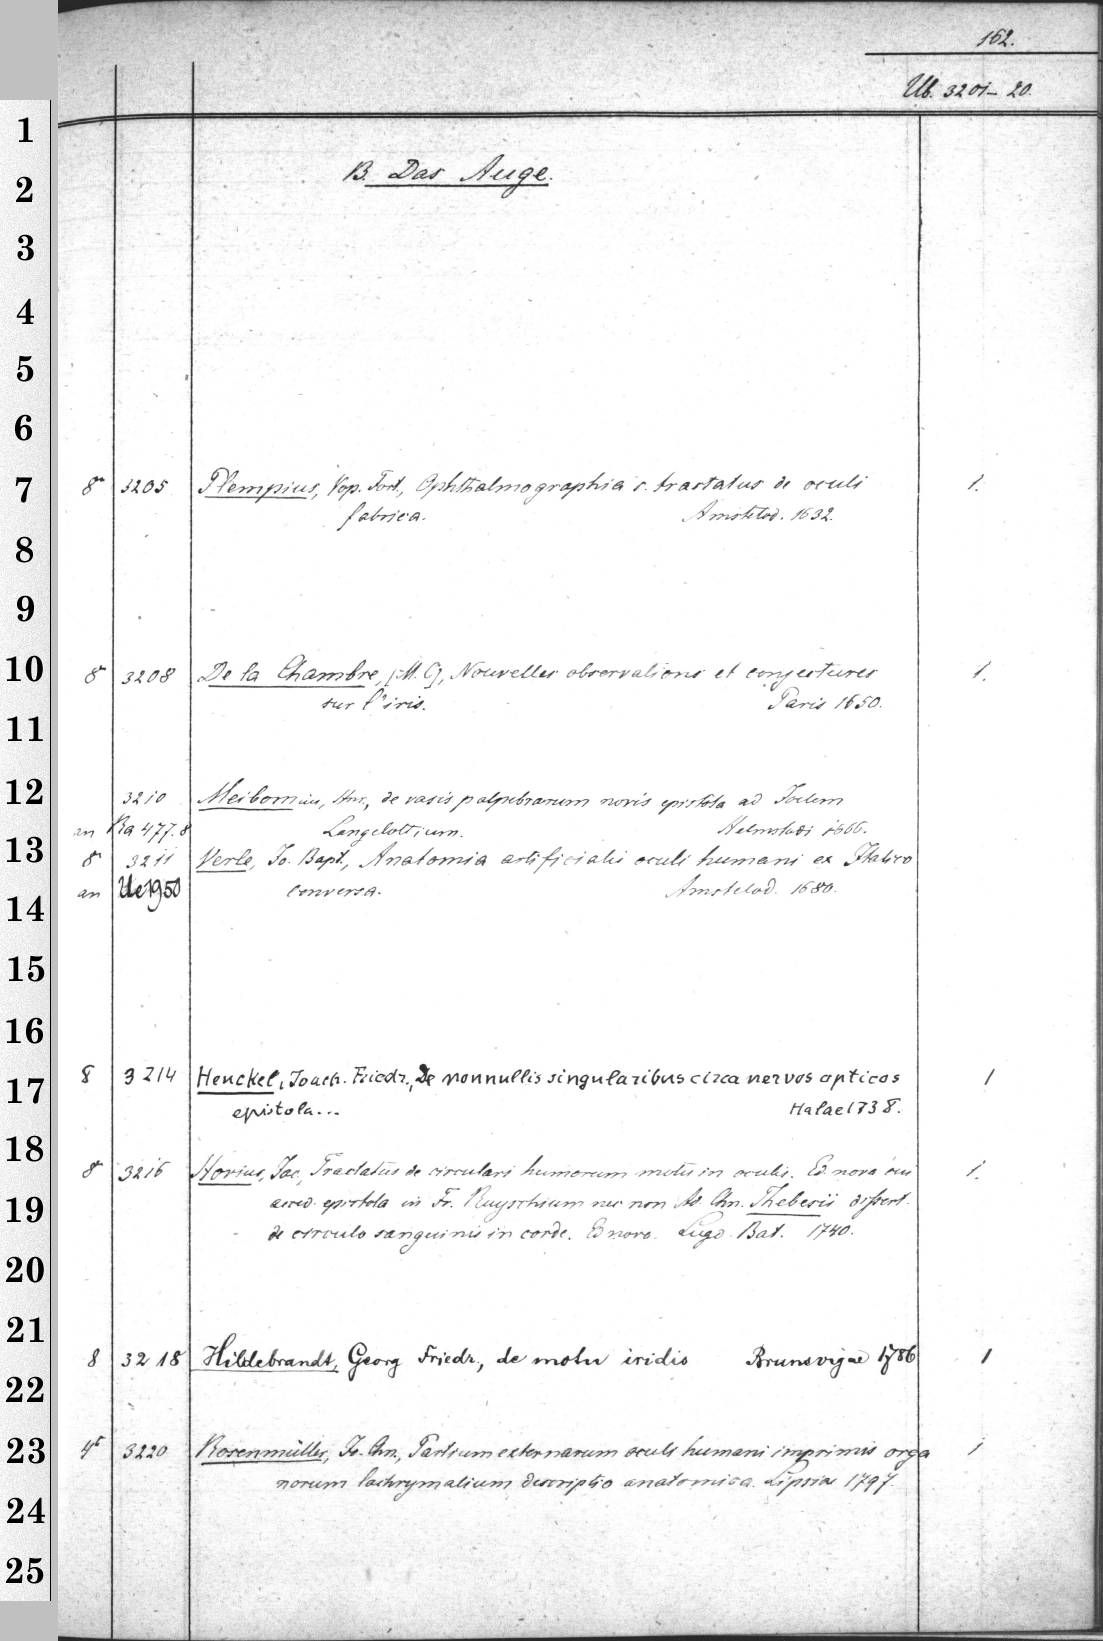 162.
Ub. 3201-20.
1
B. Das Auge.
2
3
4
5
6
7 8° 3205 Plempius, Vop. Fort., Ophthalmographia s. tractatus de oculi 1.
fabrica. Amstelod. 1632.
8
9
10 8° 3208 De la Chambre, [M. C], Nouvelles observations et conjectures 1.
sur l'iris. Paris 1650.
11
12 3210 Meibomius, Hnr., de vasis palpebrarum novis epistola ad Joelem
an Ra 477.8 Langelottium. Helmstadi 1666.
13 8° 3211 Verle, Jo. Bapt., Anatomia artificialis oculi humani ex Italico
an Ue 1950 conversa. Amstelod. 1680.
14
15
16
17 8 3214 Henckel, Joach. Friedr., De nonnullis singularibus circa nervos opticos 1
epistola... Halae 1738.
18 8° 3216 Hovius, Jac., Tractatus de circulari humorum motu in oculis. Ed. nova cui 1.
19 acced. epistola in Fr. Ruyschium nec non Ad. Chn. Thebesii dissert.
de circulo sanguinis in corde. Ed nova. Lugd. Bat. 1740.
20
21
8 3218 Hildebrandt, Georg Friedr., de motu iridis Brunsvigae 1786 1
22
23 4° 3220 Rosenmüller, Jo. Chn., Partium externarum oculi humani imprimis orga 1
norum lachrymalium descriptio anatomica. Lipsiae 1797.
24
25